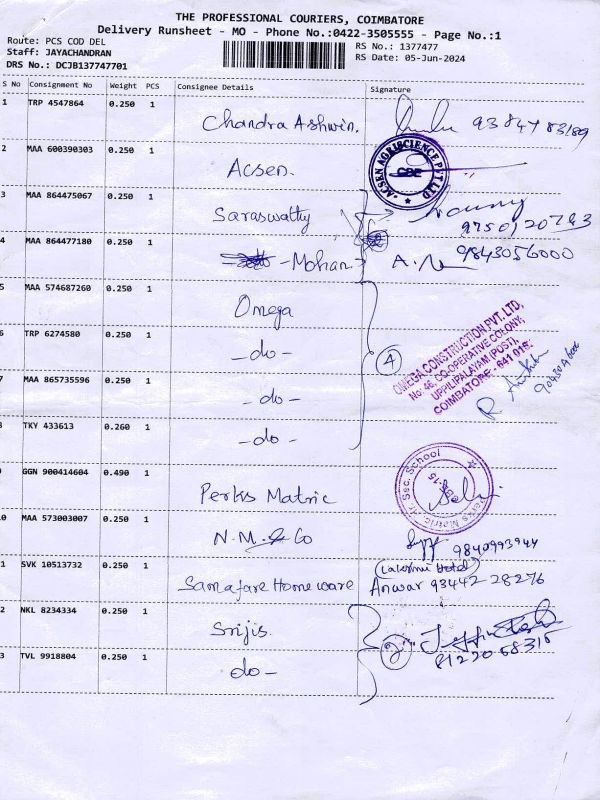 THE PROFESSIONAL COURIERS, COIMBATORE
Delivery Runsheet - MO - Phone No.:0422-3505555 - Page No.:1
Route: PCS COD DEL
Staff: JAYACHANDRAN
DRS No.: DCJB137747701
RS No.: 1377477
RS Date: 05-Jun-2024
S No Consignment No Weight PCS Consignee Details Signature
1 TRP 4547864 0.250 1 Chandra Ashwin. 93847 83189
2 MAA 600390303 0.250 1 Acsen.
ACSEN AGRISCIENCE PVT LTD CBE
3 MAA 864475067 0.250 1 Saraswathy
4 MAA 864477180 0.250 1 - Mohan 9843056000
5 MAA 574687260 0.250 1 Omega
6 TRP 6274580 0.250 1 - do -
7 MAA 865735596 0.250 1 - do -
8 TKY 433613 0.260 1 - do -
4
OMEGA CONSTRUCTION PVT. LTD,
No: 46, CO-OPERATIVE COLONY,
UPPILIPALAYAM (POST),
COIMBATORE - 641 015.
9 GGN 900414604 0.490 1 Perks Matric
Perks Matric. Hr. Sec. School
0 MAA 573003007 0.250 1 N.M. & Co 9840993944
1 SVK 10513732 0.250 1 Samafare Homeware (Lakshmi Hotel)
Anwar 93442 28276
2 NKL 8234334 0.250 1 Srijis.
3 TVL 9918804 0.250 1 do - 81220 68315